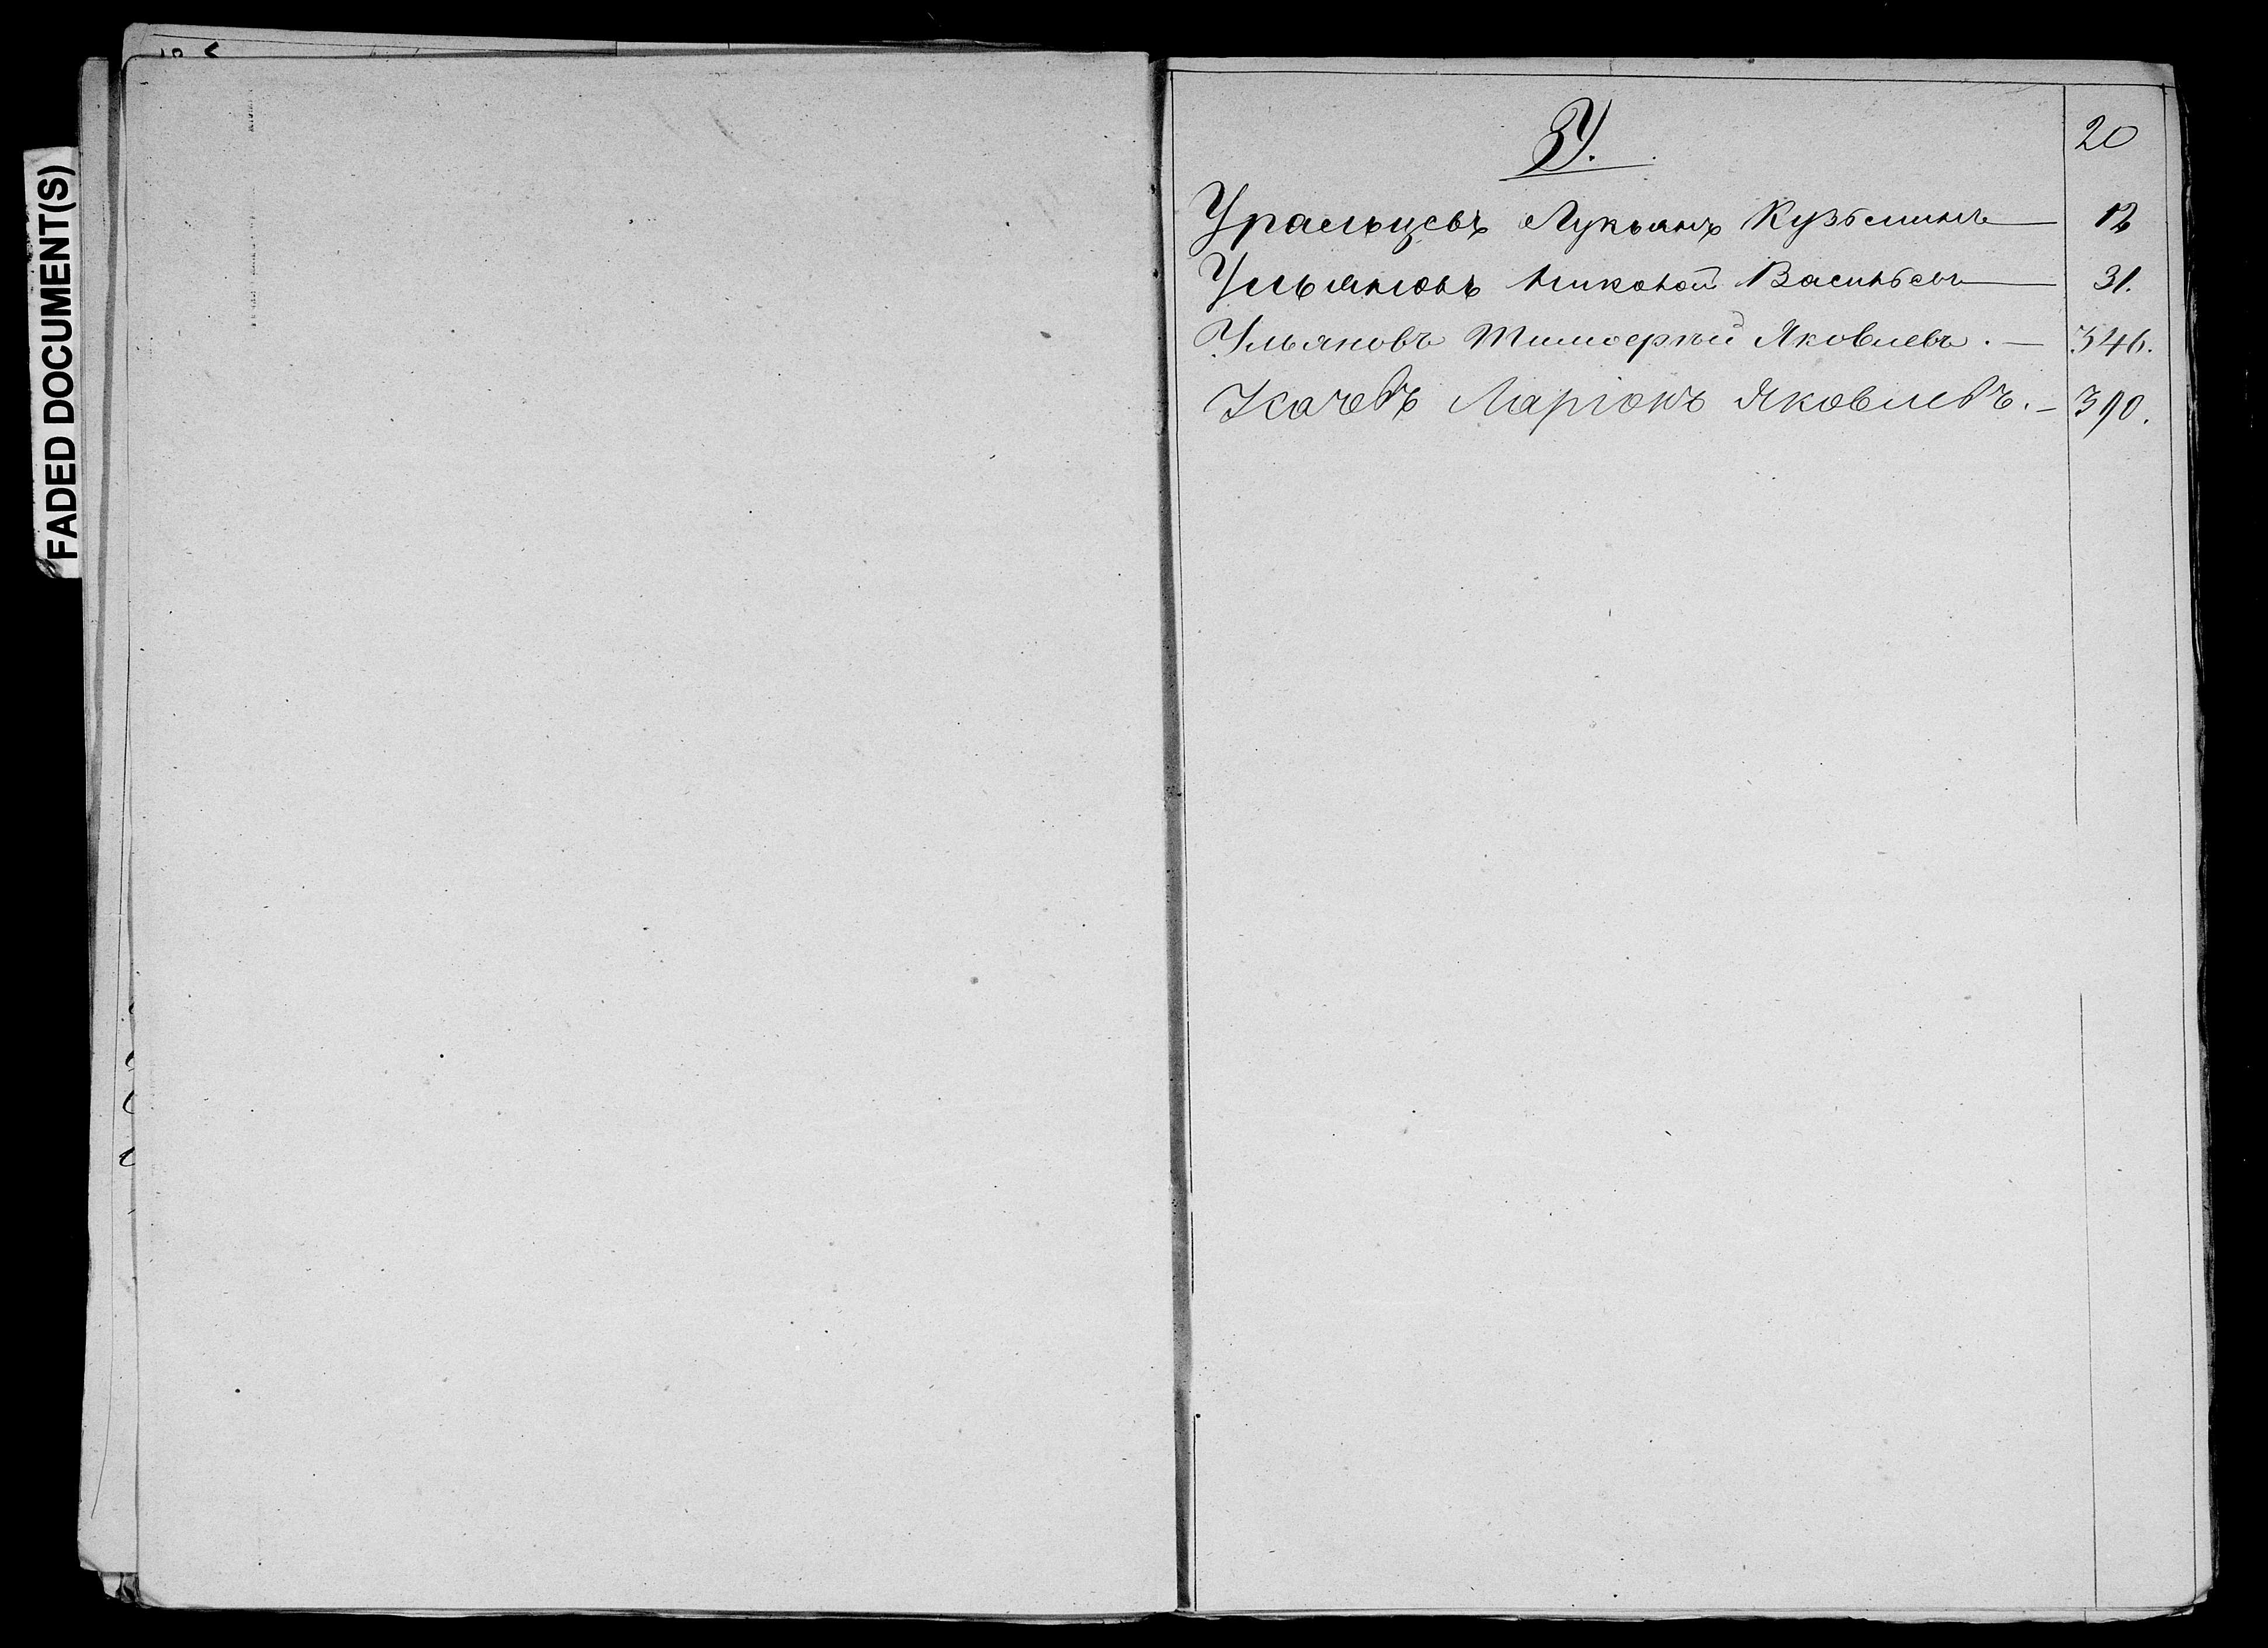 FADED DOCUMENT(S)
У.
20
Уральцевъ Лукьянъ Кузьминъ — 12
Ульяновъ Николай Васильевъ — 31.
Ульяновъ Тимоѳей Яковлевъ. — 346.
Усачевъ Ларіонъ Яковлевъ. — 390.